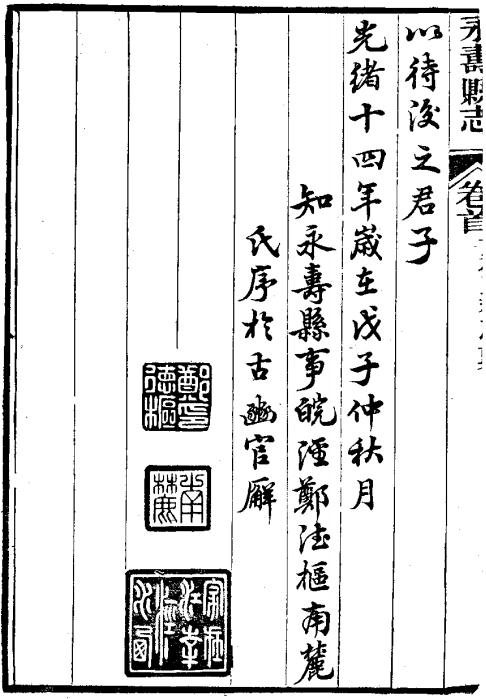 永壽縣志 卷首
以待後之君子
光緒十四年歲在戊子仲秋月
知永壽縣事皖涇鄭德樞南麓
氏序於古豳官廨
鄭印德樞
南麓